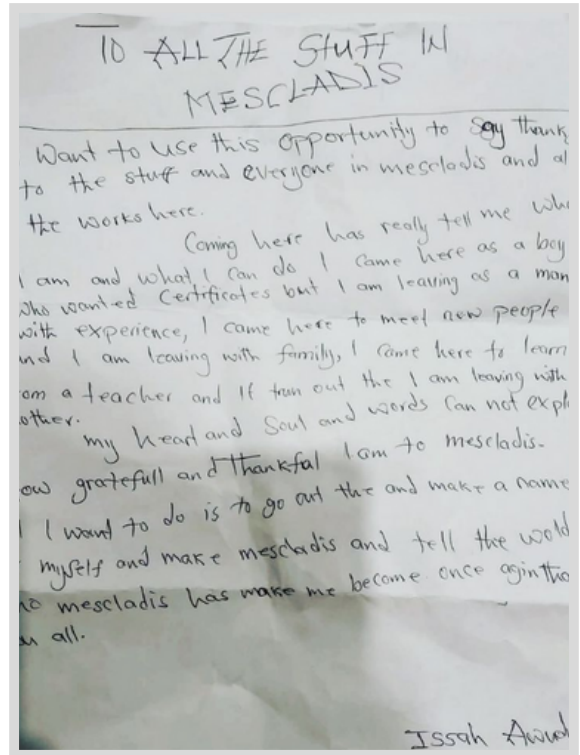 TO ALL THE STUFF IN
MESCLADIS
Want to use this opportunity to say thank
to the stuff and everyone in mescladis and al
the works here.
Coming here has really tell me who
I am and what I can do I came here as a boy
who wanted certificates but I am leaving as a man
with experience, I came here to meet new people
and I am leaving with family, I came here to learn
om a teacher and It trun out the I am leaving with
other.
my head and Soul and words can not expl
ow gratefull and thankful I am to mescladis.
I I want to do is to go out the and make a name
myself and make mescladis and tell the wold
ho mescladis has make me become once agin tha
u all.
Issah Awud